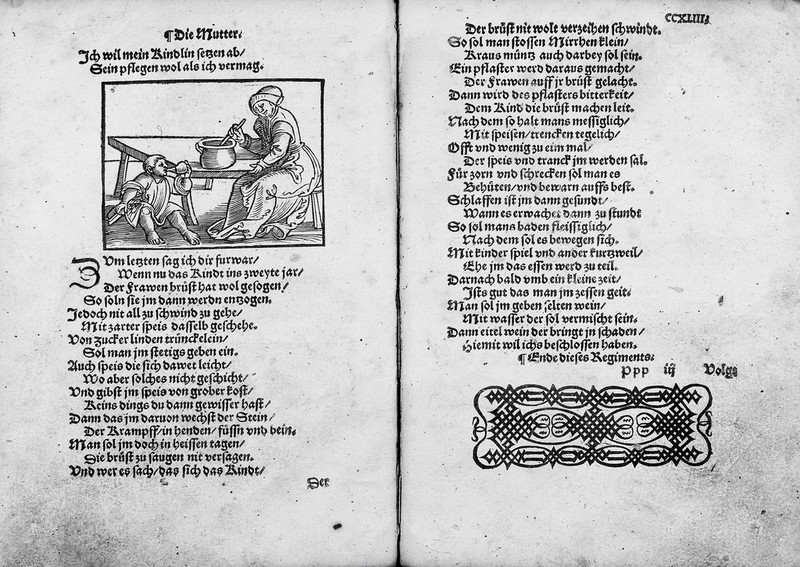 ¶Die Mutter.
Ich wil mein Kindlin setzen ab/
Sein pflegen wol als ich vermag.
ZUm letzten sag ich dir furwar/
Wenn nu das Kindt ins zweyte jar/
Der Frawen brüst hat wol gesogen/
So soln sie jm dann werdn entzogen.
Jedoch nit all zu schwind zu gehe/
Mit zarter speis dasselb geschehe.
Von zucker linden trünckelein/
Sol man jm stetigs geben ein.
Auch speis die sich dawet leicht/
Wo aber solches nicht geschicht/
Vnd gibst jm speis von grober kost/
Keins dings du dann gewisser hast/
Dann das jm daruon wechst der Stein/
Der Krampff/in henden/füssn vnd bein.
Man sol jm doch in heissen tagen/
Die brüst zu saugen nit versagen.
Vnd wer es sach/das sich das Kindt/
Der
CCXLIII.
Der brüst nit wolt verzeihen schwindt.
So sol man stossen Mirrhen klein/
Kraus müntz auch darbey sol sein.
Ein pflaster werd daraus gemacht/
Der Frawen auff jr brüst gelacht.
Dann wird des pflasters bitterkeit/
Dem Kind die brüst machen leit.
Nach dem so halt mans messiglich/
Mit speisen/trencken tegelich/
Offt vnd wenig zu eim mal/
Der speis vnd tranck jm werden sal.
Für zorn vnd schrecken sol man es
Behüten/vnd bewarn auffs best.
Schlaffen ist jm dann gesundt/
Wann es erwachet dann zu stundt
So sol mans baden fleissiglich/
Nach dem sol es bewegen sich.
Mit kinder spiel vnd ander kurtzweil/
Ehe jm das essen werd zu teil.
Darnach bald vmb ein kleine zeit/
Ists gut das man jm zessen geit.
Man sol jm geben selten wein/
Mit wasser der sol vermischt sein.
Dann eitel wein der bringt jn schaden/
Hiemit wil ichs beschlossen haben.
¶Ende dieses Regiments.
Ppp iij Volgt